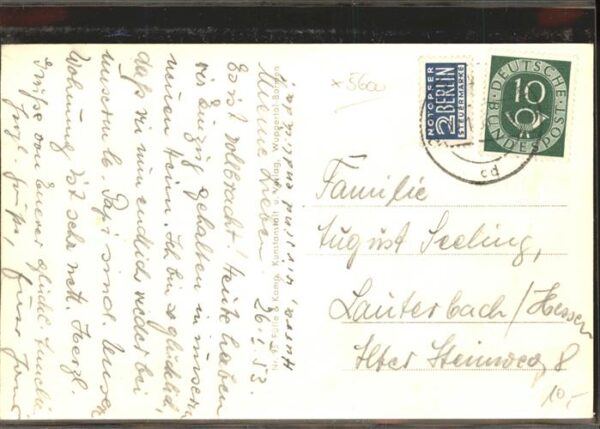 x 5600
NOTOPFER
2 BERLIN
STEUERMARKE
DEUTSCHE
10
BUNDESPOST
cd
Familie
August Seeling,
Lauterbach/Hessen
Alter Steinweg 8
10,-
Hurra, wir sind
26.2.53.
Meine Lieben!
Es ist vollbracht! Heute haben
wir Einzug gehalten in unsern
neuen Heim. Ich bin so glücklich,
daß wir nun endlich wieder bei
unserm lb. Papi sind. Unsere
Wohnung ist sehr nett. Herzl.
Grüße von Eurer glückl.
Kunstanstalt u. Verlag, Wuppertal-Barmen